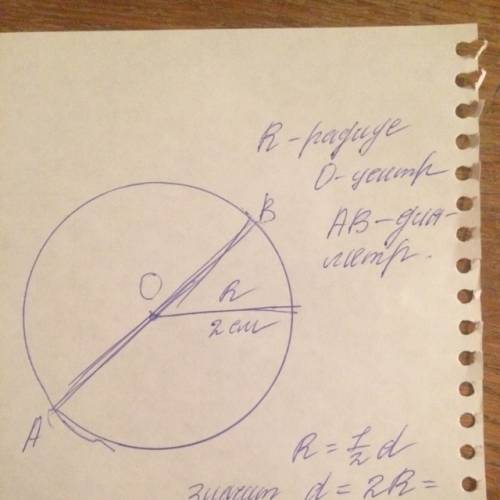 R - радиус
O - центр
AB - диа-
метр.
B
O
R
2 см
A
R = 1/2 d
значит d = 2R =